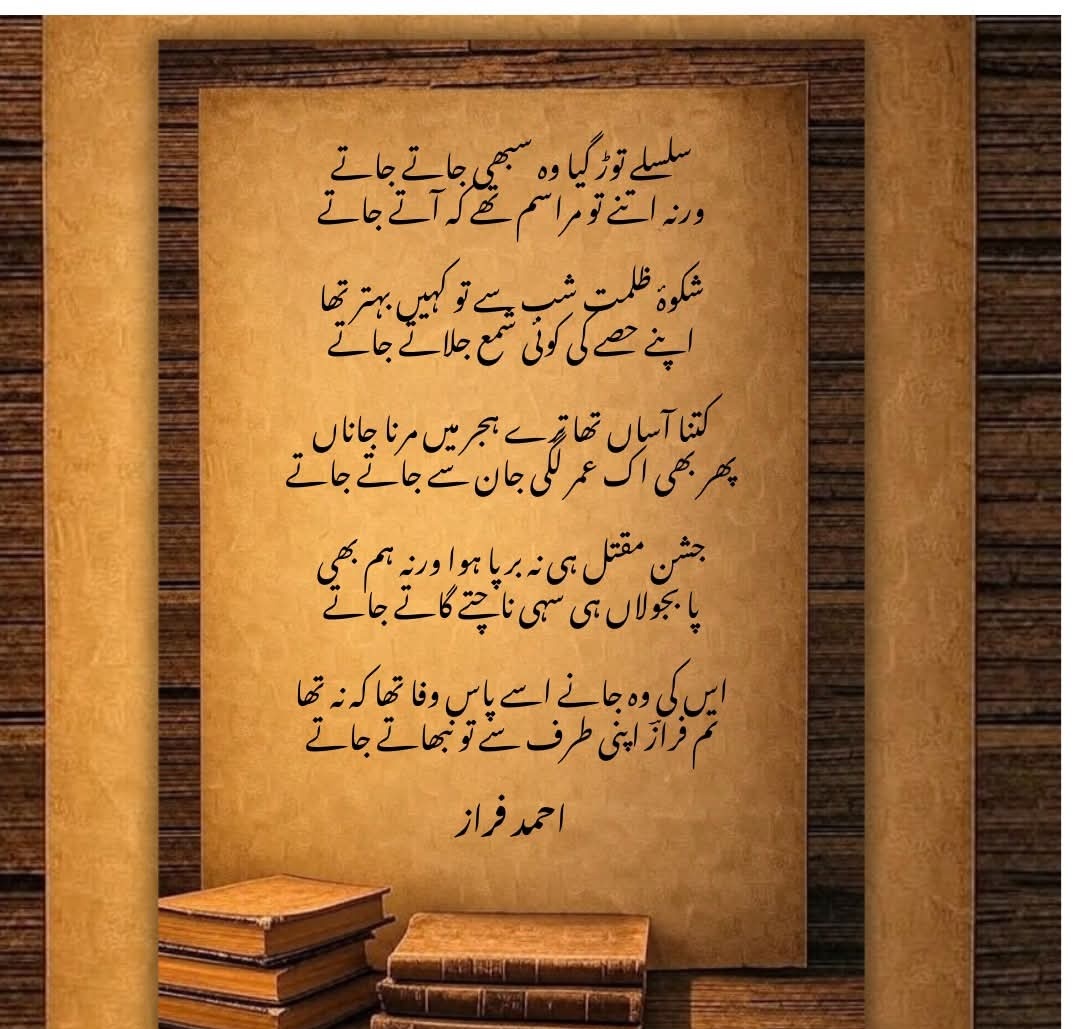 سلسلے توڑ گیا وہ سبھی جاتے جاتے
ورنہ اتنے تو مراسم تھے کہ آتے جاتے
شکوۂ ظلمت شب سے تو کہیں بہتر تھا
اپنے حصے کی کوئی شمع جلاتے جاتے
کتنا آساں تھا ترے ہجر میں مرنا جاناں
پھر بھی اک عمر لگی جان سے جاتے جاتے
جشن مقتل ہی نہ برپا ہوا ورنہ ہم بھی
پا بجولاں ہی سہی ناچتے گاتے جاتے
اس کی وہ جانے اسے پاس وفا تھا کہ نہ تھا
تم فرازؔ اپنی طرف سے تو نبھاتے جاتے
احمد فراز